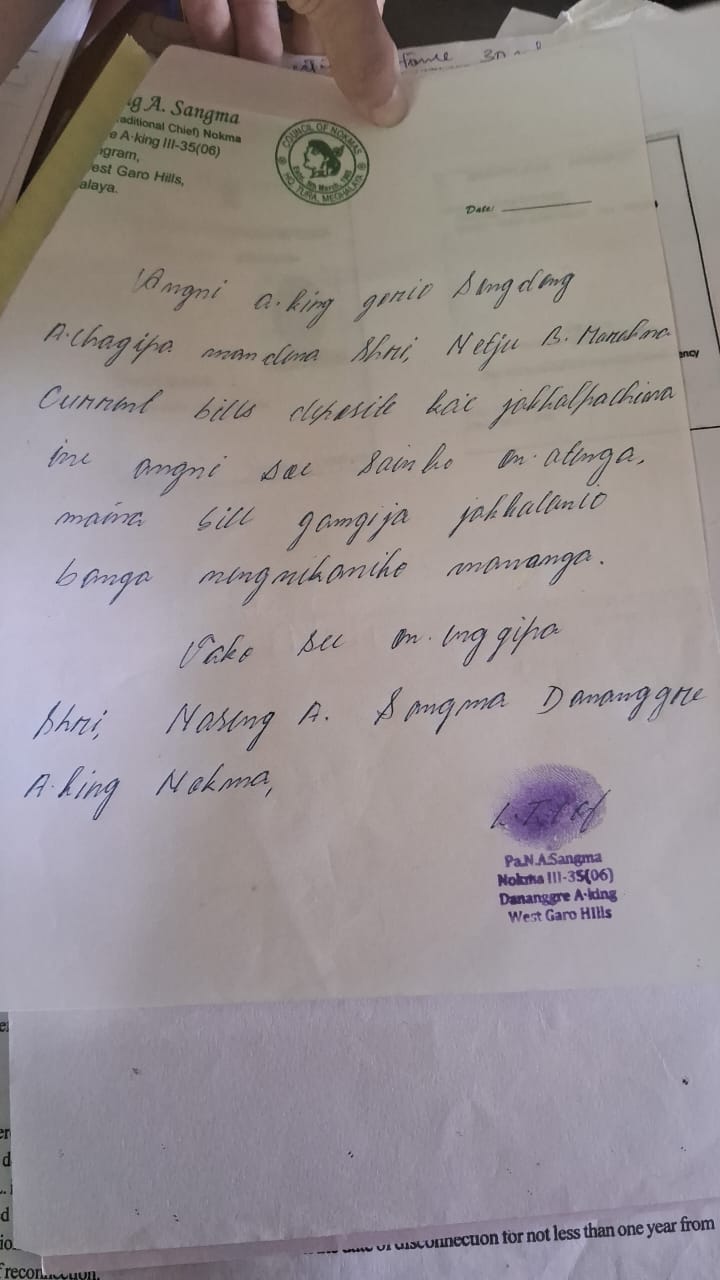 g A. Sangma
aditional Chief) Nokma
e A·king III-35(06)
gram,
est Garo Hills,
alaya.
COUNCIL OF NOKMAS
HQ. TURA, MEGHALAYA
Date:
Angni a·king gonio Songdong
A·chagipa mandena Shri, Netju B. Marakna
Current bills deposite kae jakkalpachina
ine angni see sainko on·atenga,
maina bill gamgija jakkalanio
banga nengnikaniko mananga.
Iako see on·enggipa
Shri, Naseng A. Sangma Dananggre
A·king Nokma,
L.T.I of
Pa.N.A.Sangma
Nokma III-35(06)
Dananggre A·king
West Garo Hills
ency
disconnection for not less than one year from